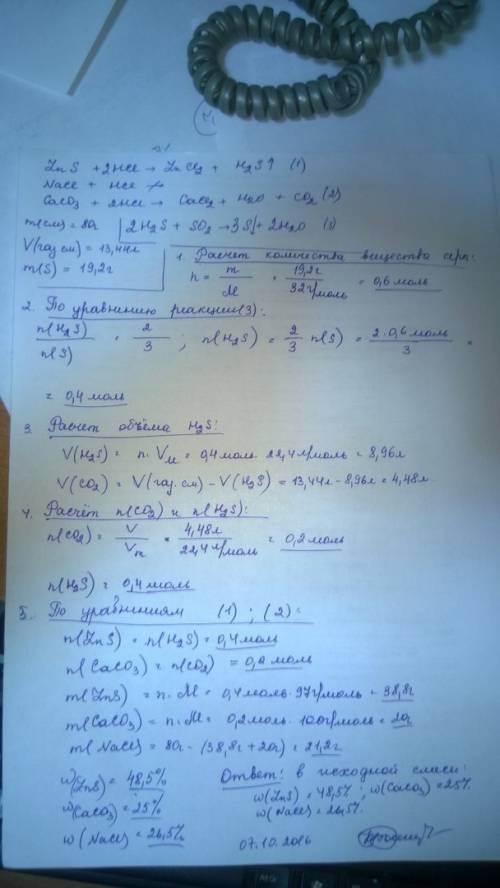 ZnS + 2HCl → ZnCl₂ + H₂S↑ (1)
NaCl + HCl ↛
CaCO₃ + 2HCl → CaCl₂ + H₂O + CO₂ (2)
m(см) = 80г
2H₂S + SO₂ → 3S↓ + 2H₂O (3)
V(газ.см) = 13,44л
m(S) = 19,2г
1. Расчет количества вещества серы:
n = m/M = 19,2г/32г/моль = 0,6 моль
2. По уравнению реакции (3):
n(H₂S)/n(S) = 2/3 ; n(H₂S) = 2/3 n(S) = 2·0,6 моль/3 =
= 0,4 моль
3. Расчет объёма H₂S:
V(H₂S) = n·Vм = 0,4 моль·22,4 л/моль = 8,96л
V(CO₂) = V(газ.см) - V(H₂S) = 13,44л - 8,96л = 4,48л.
4. Расчёт n(CO₂) и n(H₂S):
n(CO₂) = V/Vm = 4,48л/22,4л/моль = 0,2 моль
n(H₂S) = 0,4 моль
5. По уравнениям (1) ; (2):
n(ZnS) = n(H₂S) = 0,4 моль
n(CaCO₃) = n(CO₂) = 0,2 моль
m(ZnS) = n·M = 0,4 моль·97г/моль = 38,8г
m(CaCO₃) = n·M = 0,2 моль·100г/моль = 20г
m(NaCl) = 80г - (38,8г + 20г) = 21,2г
w(ZnS) = 48,5%
w(CaCO₃) = 25%
w(NaCl) = 26,5%
Ответ: в исходной смеси:
w(ZnS) = 48,5% ; w(CaCO₃) = 25%
w(NaCl) = 26,5%.
07.10.2016